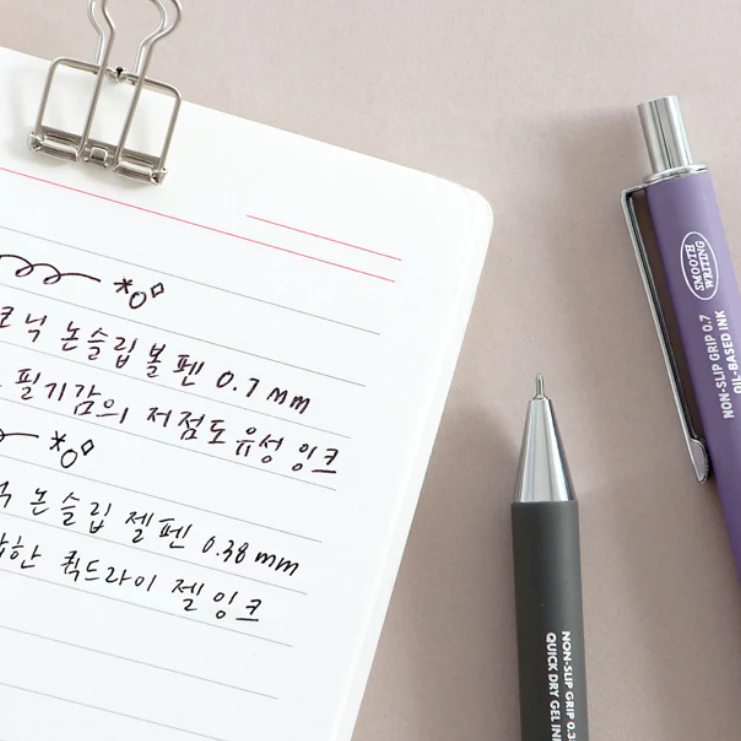 논슬립볼펜 0.7 mm
필기감의 저점도유성 잉크
논슬립 젤펜 0.38 mm
퀵드라이 젤잉크
SMOOTH
WRITING
NON-SLIP GRIP 0.7
OIL-BASED INK
NON-SLIP GRIP
QUICK DRY GEL INK